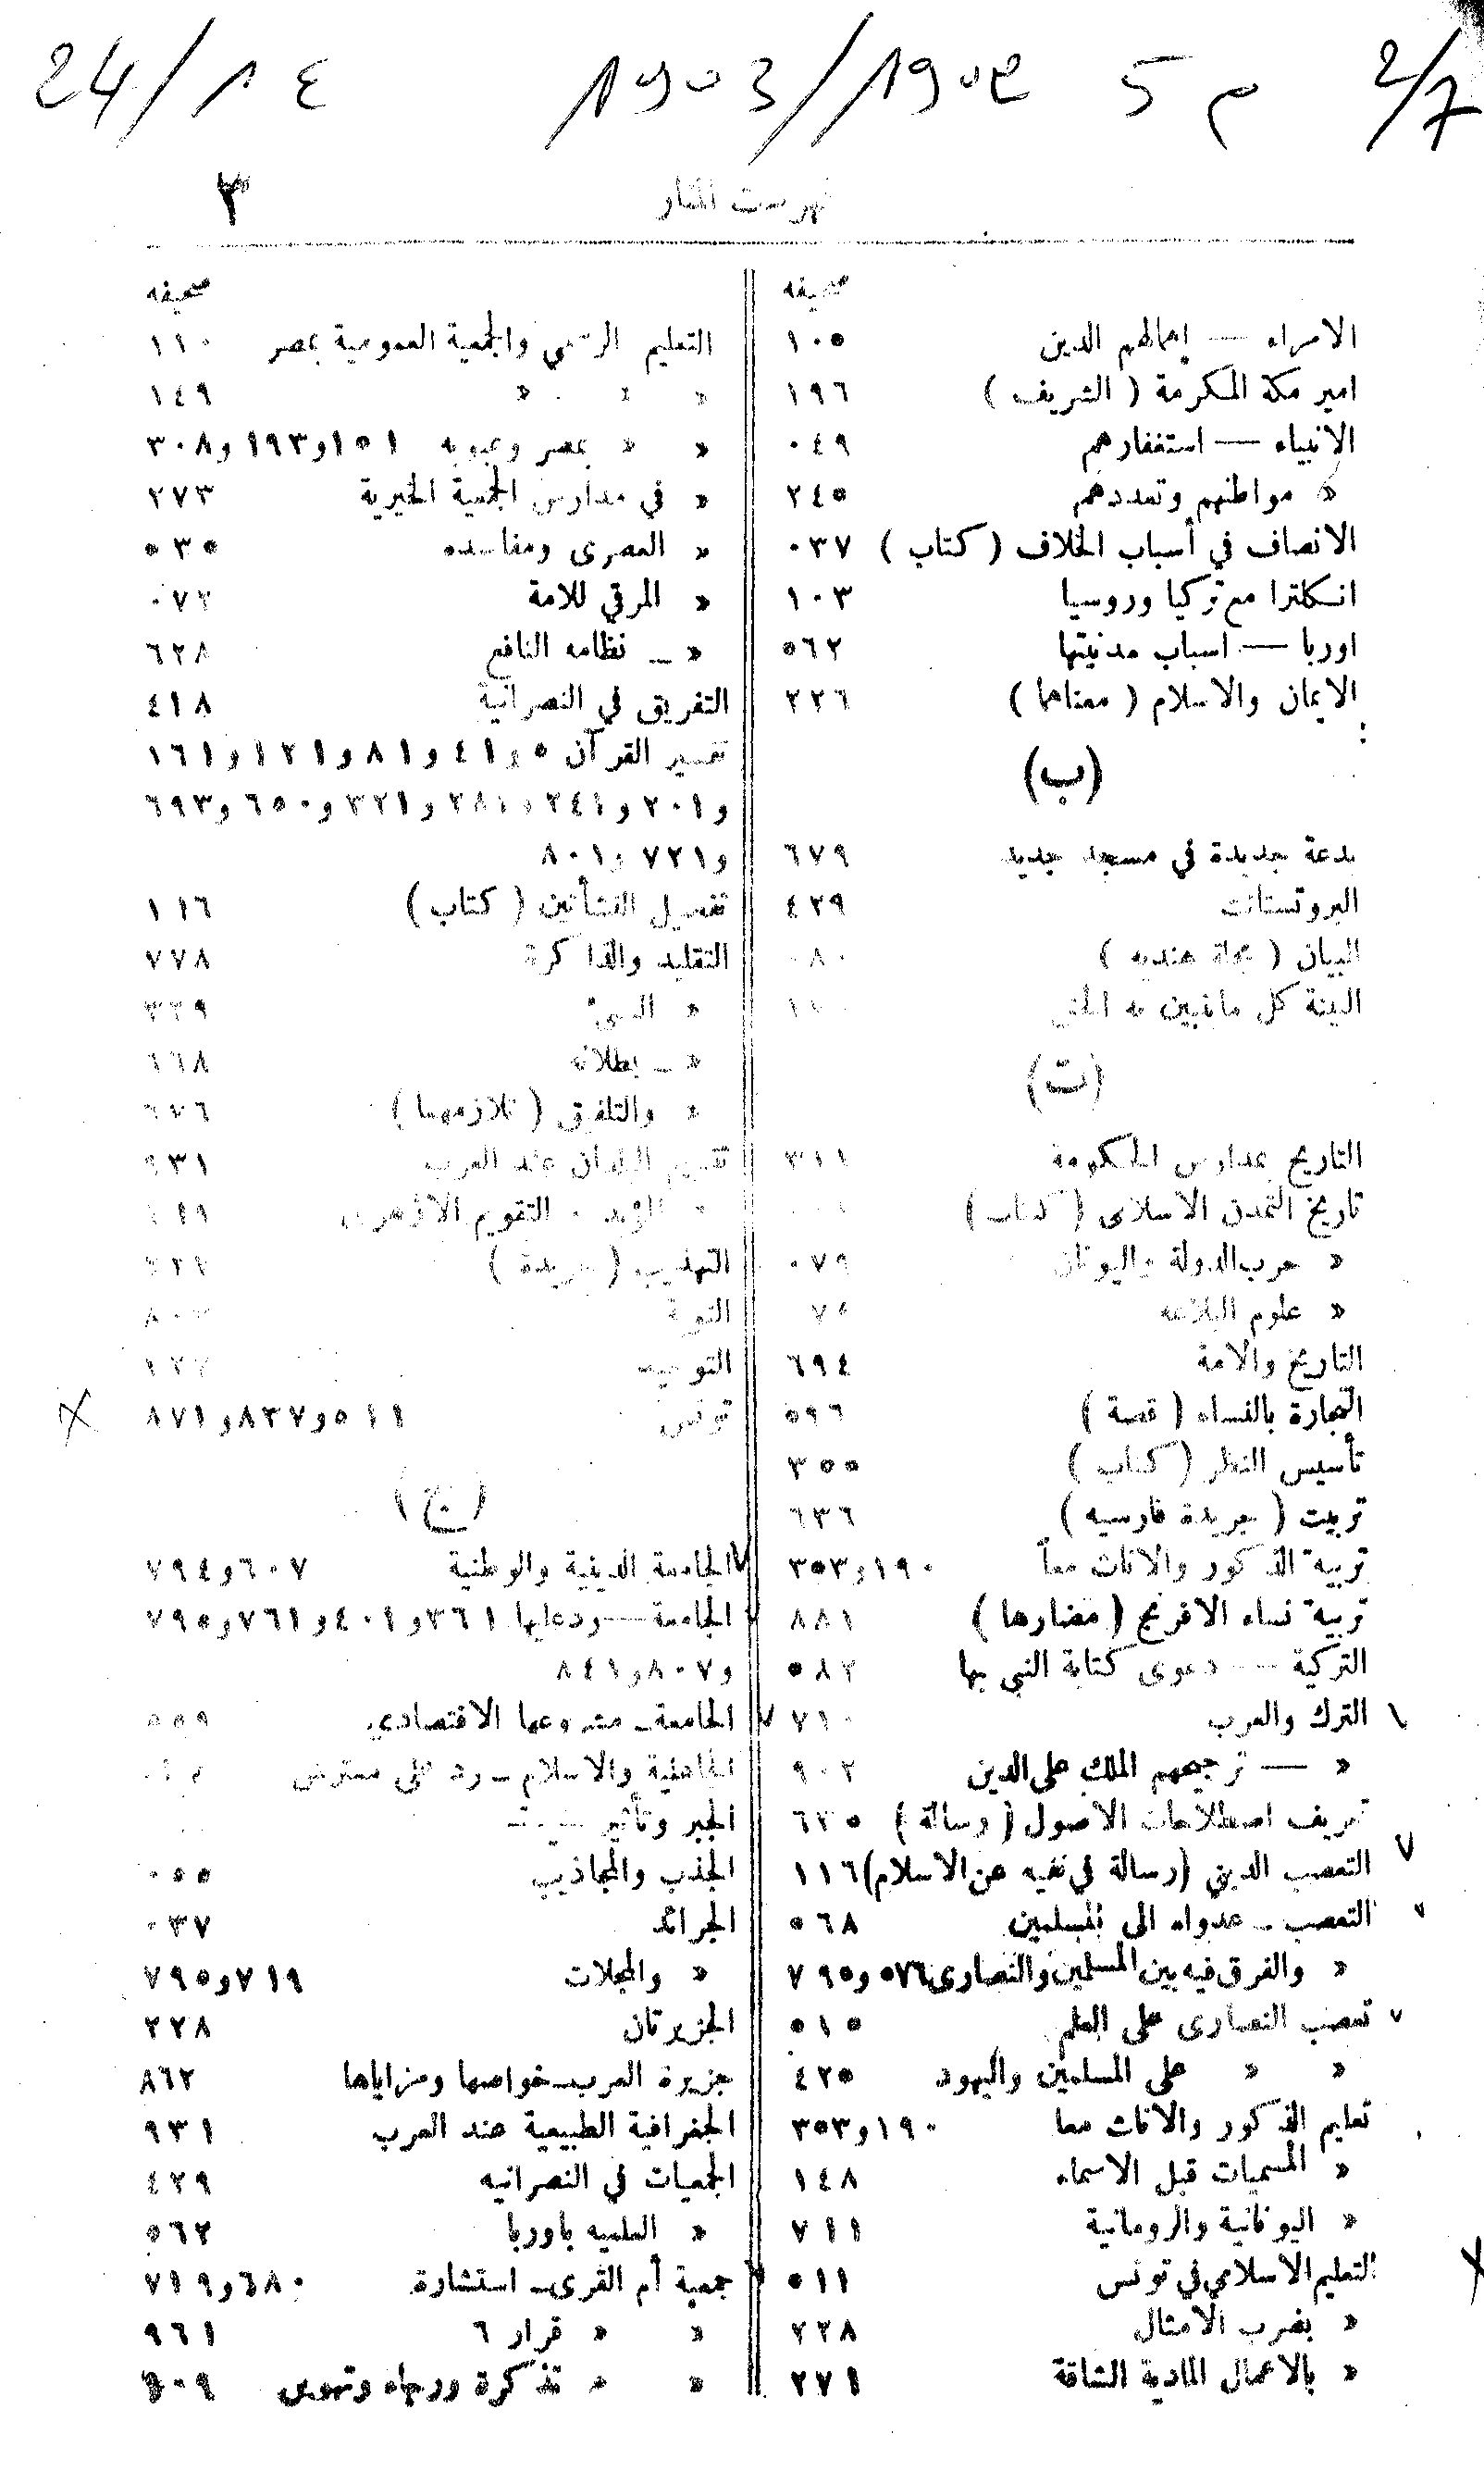 24/١٤ 1903/1902 م 5 2/7
فهرست المنار ٣
صحيفه
الامراء — إهمالهم الدين ١٠٥
امير مكة المكرمة ( الشريف ) ١٩٦
الانبياء — استغفارهم ٠٤٩
« مواطنهم وتعددهم ٢٤٥
الانصاف في أسباب الخلاف ( كتاب ) ٠٣٧
انكلترا مع تركيا وروسيا ١٠٣
اوربا — اسباب مدنيتها ٥٦٢
الايمان والاسلام ( معناهما ) ٢٢٦
(ب)
بدعة جديدة في مسجد جديد ٦٧٩
البروتستانت ٤٢٩
البيان ( مجلة هنديه ) ٠٨٠
البينة كل ماتبين به الحق
(ت)
التاريخ بمدارس الحكومة ٣١١
تاريخ التمدن الاسلامي ( كتاب )
« حرب الدولة واليونان ٠٧٩
« علوم البلاغه
التاريخ والامة ٦٩٤
التجارة بالنساء ( قصة ) ٥٩٦
تأسيس النظر ( كتاب ) ٣٥٥
تربيت ( جريدة فارسيه ) ٦٣٦
تربية الذكور والاناث معاً ١٩٠و٣٥٣
تربية نساء الافرنج ( مضارها ) ٨٨١
التركية — دعوى كتابة النبي بها ٥٨٢
الترك والعرب ٧١٠
« — ترجيحهم الملك على الدين ٩٠٢
تعريف اصطلاحات الاصول ( رسالة ) ٦٣٥
التعصب الديني (رسالة في نفيه عن الاسلام) ١١٦
التعصب ـ عدواه الى المسلمين ٥٦٨
« والفرق فيه بين المسلمين والنصارى ٥٧٦و٧٩٥
تعصب النصارى على العلم ٥١٥
« « على المسلمين واليهود ٤٢٥
تعليم الذكور والاناث معا ١٩٠و٣٥٣
« المسميات قبل الاسماء ١٤٨
« اليونانية والرومانية ٧١١
التعليم الاسلامي في تونس ٥١١
« بضرب الامثال ٢٢٨
« بالاعمال المادية الشاقة ٢٧١
صحيفه
التعليم الرسمي والجمعية العمومية بمصر ١١٠
« « « ١٤٩
« « بمصر وعيوبه ١٥١و١٩٣و٣٠٨
« في مدارس الجمعية الخيرية ٢٧٣
« المصرى ومفاسده ٥٣٥
« المرقي للامة ٠٧٢
« ـ نظامه النافع ٦٢٨
التفريق في النصرانية ٤١٨
تفسير القرآن ٥و٤١و٨١و١٢١و١٦١
و٢٠١و٢٤١و٢٨١و٣٢١و٦٥٠و٦٩٣
و٧٢١و٨٠١
تفصيل النشأتين ( كتاب ) ١١٦
التقليد والذاكرة ٧٧٨
« ٣٢٩
« ـ بطلانه ٦٦٨
« والتلفيق ( تلازمهما ) ٦٧٦
تقسيم البلدان عند العرب ٩٣١
« المؤيد . التقويم الازهرى
التهذيب ( جريدة )
التوبة
التوحيد
تونس ٥١١و٨٣٧و٨٧١
(ج)
الجامعة الدينية والوطنية ٦٠٧و٧٩٤
الجامعة — ورد عليها ٣٦١و٤٠١و٧٦١و٧٩٥
و٨٠٧و٨٤١
الجامعة ـ مشروعها الاقتصادي ٥٥٩
الجاهلية والاسلام ـ رد على معترض
الجبر وتأثير
الجذب والمجاذيب ٠٥٥
الجرائد ٠٣٧
« والمجلات ٧١٩و٧٩٥
الجزيرتان ٢٢٨
جزيرة العرب ـ خواصها ومزاياها ٨٦٢
الجغرافية الطبيعية عند العرب ٩٣١
الجمعيات في النصرانيه ٤٢٩
« العلميه باوربا ٥٦٢
جمعية أم القرى ـ استشارة ٦٨٠و٧١٩
« « قرار ٦ ٩٦١
« « تذكرة ورجاء وتهوس ٩٠٩